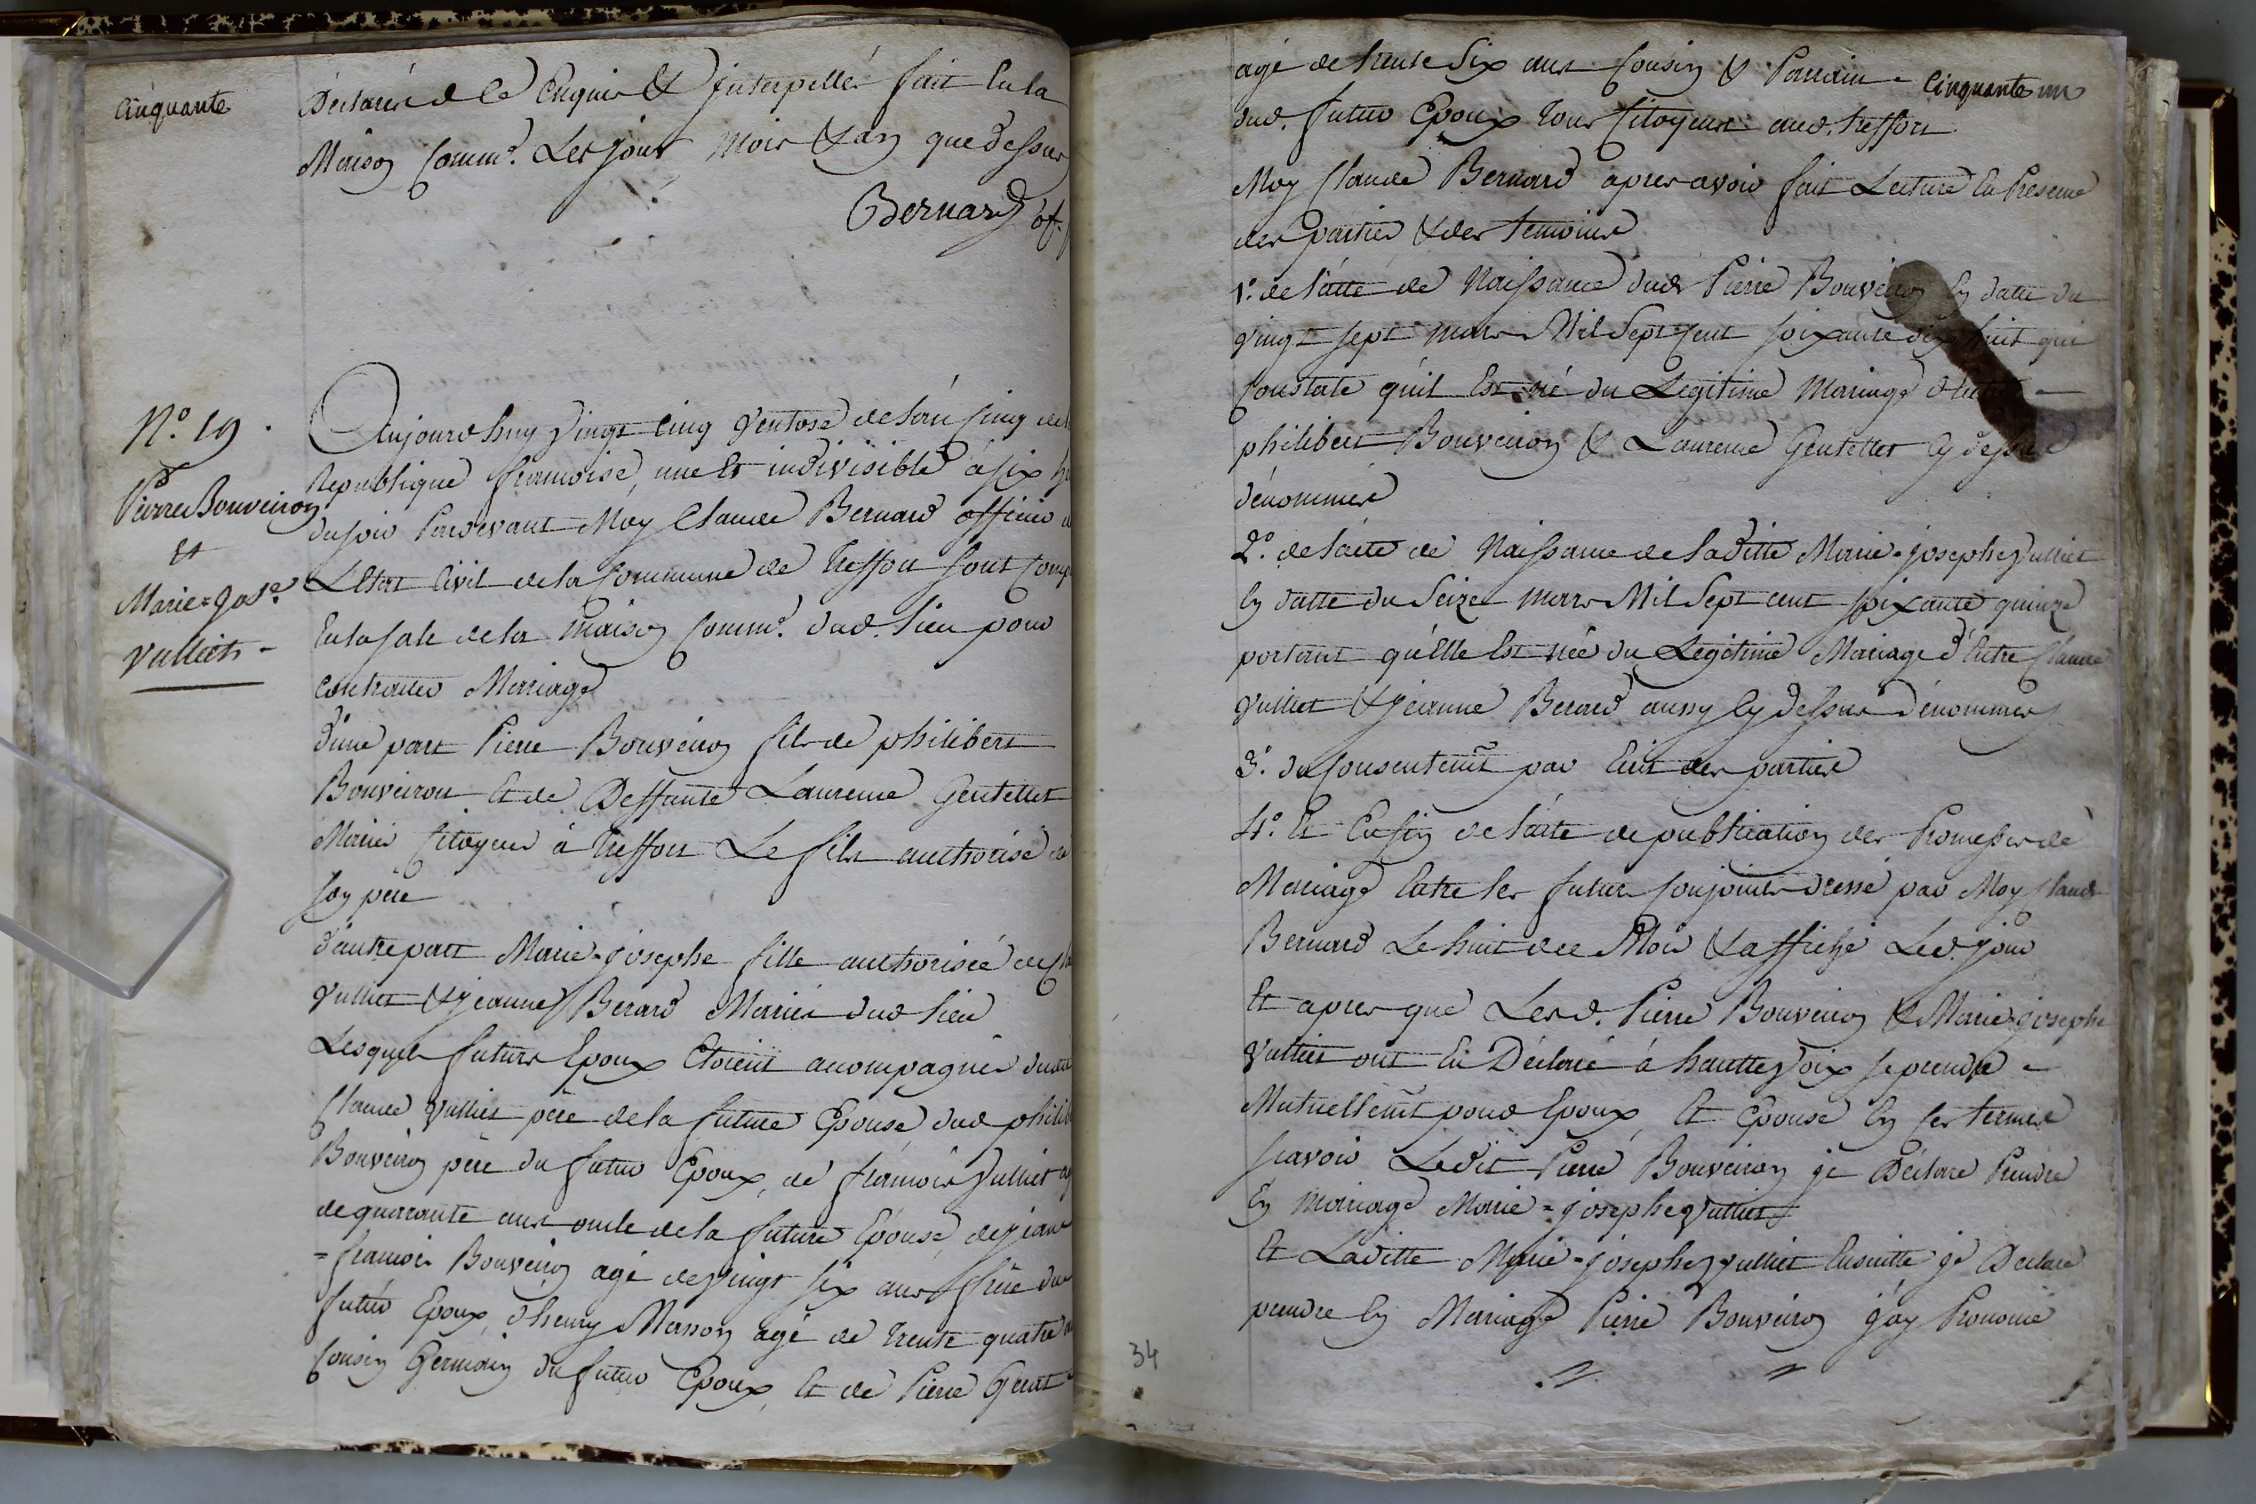 Cinquante
Déclarés de Ce Enquis & Interpellés fait En la
Maison Comm.e Les jour mois & an que dessus
Bernard of.
N.o 19.
Pierre Bouveiron
et
Marie=Jos.e
Vulliet.
Aujourd huy Vingt Cinq Ventose de l'an Cinq de
Republique francoise, une Et indivisible à six h
du soir Pardevant Moy Claude Bernard officier
L'Etat Civil de la Commune de Treffort sont Comp
En la sale de la Maison Comm.e dud. Lieu pour
Contracter Mariage
d'une part Pierre Bouveiron fils de philibert
Bouveiron Et de Deffunte Laurence Gentellet
Mariés Citoyens à Treffort Le fils authorisé de
son père
d'autre part Marie=josephe fille authorisée de
Vulliet & jeanne Berard Mariés dud Lieu
Lesquels futurs Epoux Etoient acompagnés dudit
Claude Vulliet père de la future Epouse, dud philib
Bouveiron père du futur Epoux, de francois Vulliet ag
de quarante ans oncle de la future Epouse, de jean
=francois Bouveiron agé de vingt six ans frere du
futur Epoux, d'henry Masson agé de trente quatre
Cousin Germain du futur Epoux, Et de Pierre Gent
agé de trente Six ans Cousin & Parrain = Cinquante un
dud. futur Epoux tous Citoyens aud. treffort
Moy Claude Bernard apres avoir fait Lecture En Presence
des parties & des temoins
1.o de l'acte de Naissance dud Pierre Bouveiron En date du
vingt sept mars Mil Sept Cent soixante dix huit qui
Constate qu'il Est né du Legitime Mariage d'Entre =
philibert Bouveiron & Laurence Gentellet Cy dessus
dénommés
2.o de l'acte de Naissance de Laditte Marie=josephe Vulliet
En datte du Seize mars Mil Sept cent soixante quinze
portant qu'Elle Est née du Legitime Mariage d'Entre Claude
Vulliet & jeanne Berard aussy Cy dessus dénommés
3.o du Consentem.t par Ecrit des parties
4.o Et Enfin de l'acte de publication des Promesses de
Mariage Entre les futurs Conjoints dressé par Moy Claude
Bernard Le huit de ce Mois & affiché Led. jour
Et apres que Lesd. Pierre Bouveiron & Marie=josephe
Vulliet ont Eu Déclaré à hautte Voix se prendre =
Mutuellem.t pour Epoux, Et Epouse En ces termes
scavoir Ledit Pierre Bouveiron je Déclare Prendre
En Mariage Marie=josephe Vulliet
Et Laditte Marie=josephe Vulliet Ensuitte je Declare
prendre En Mariage Pierre Bouveiron j'ay Prononcé
34